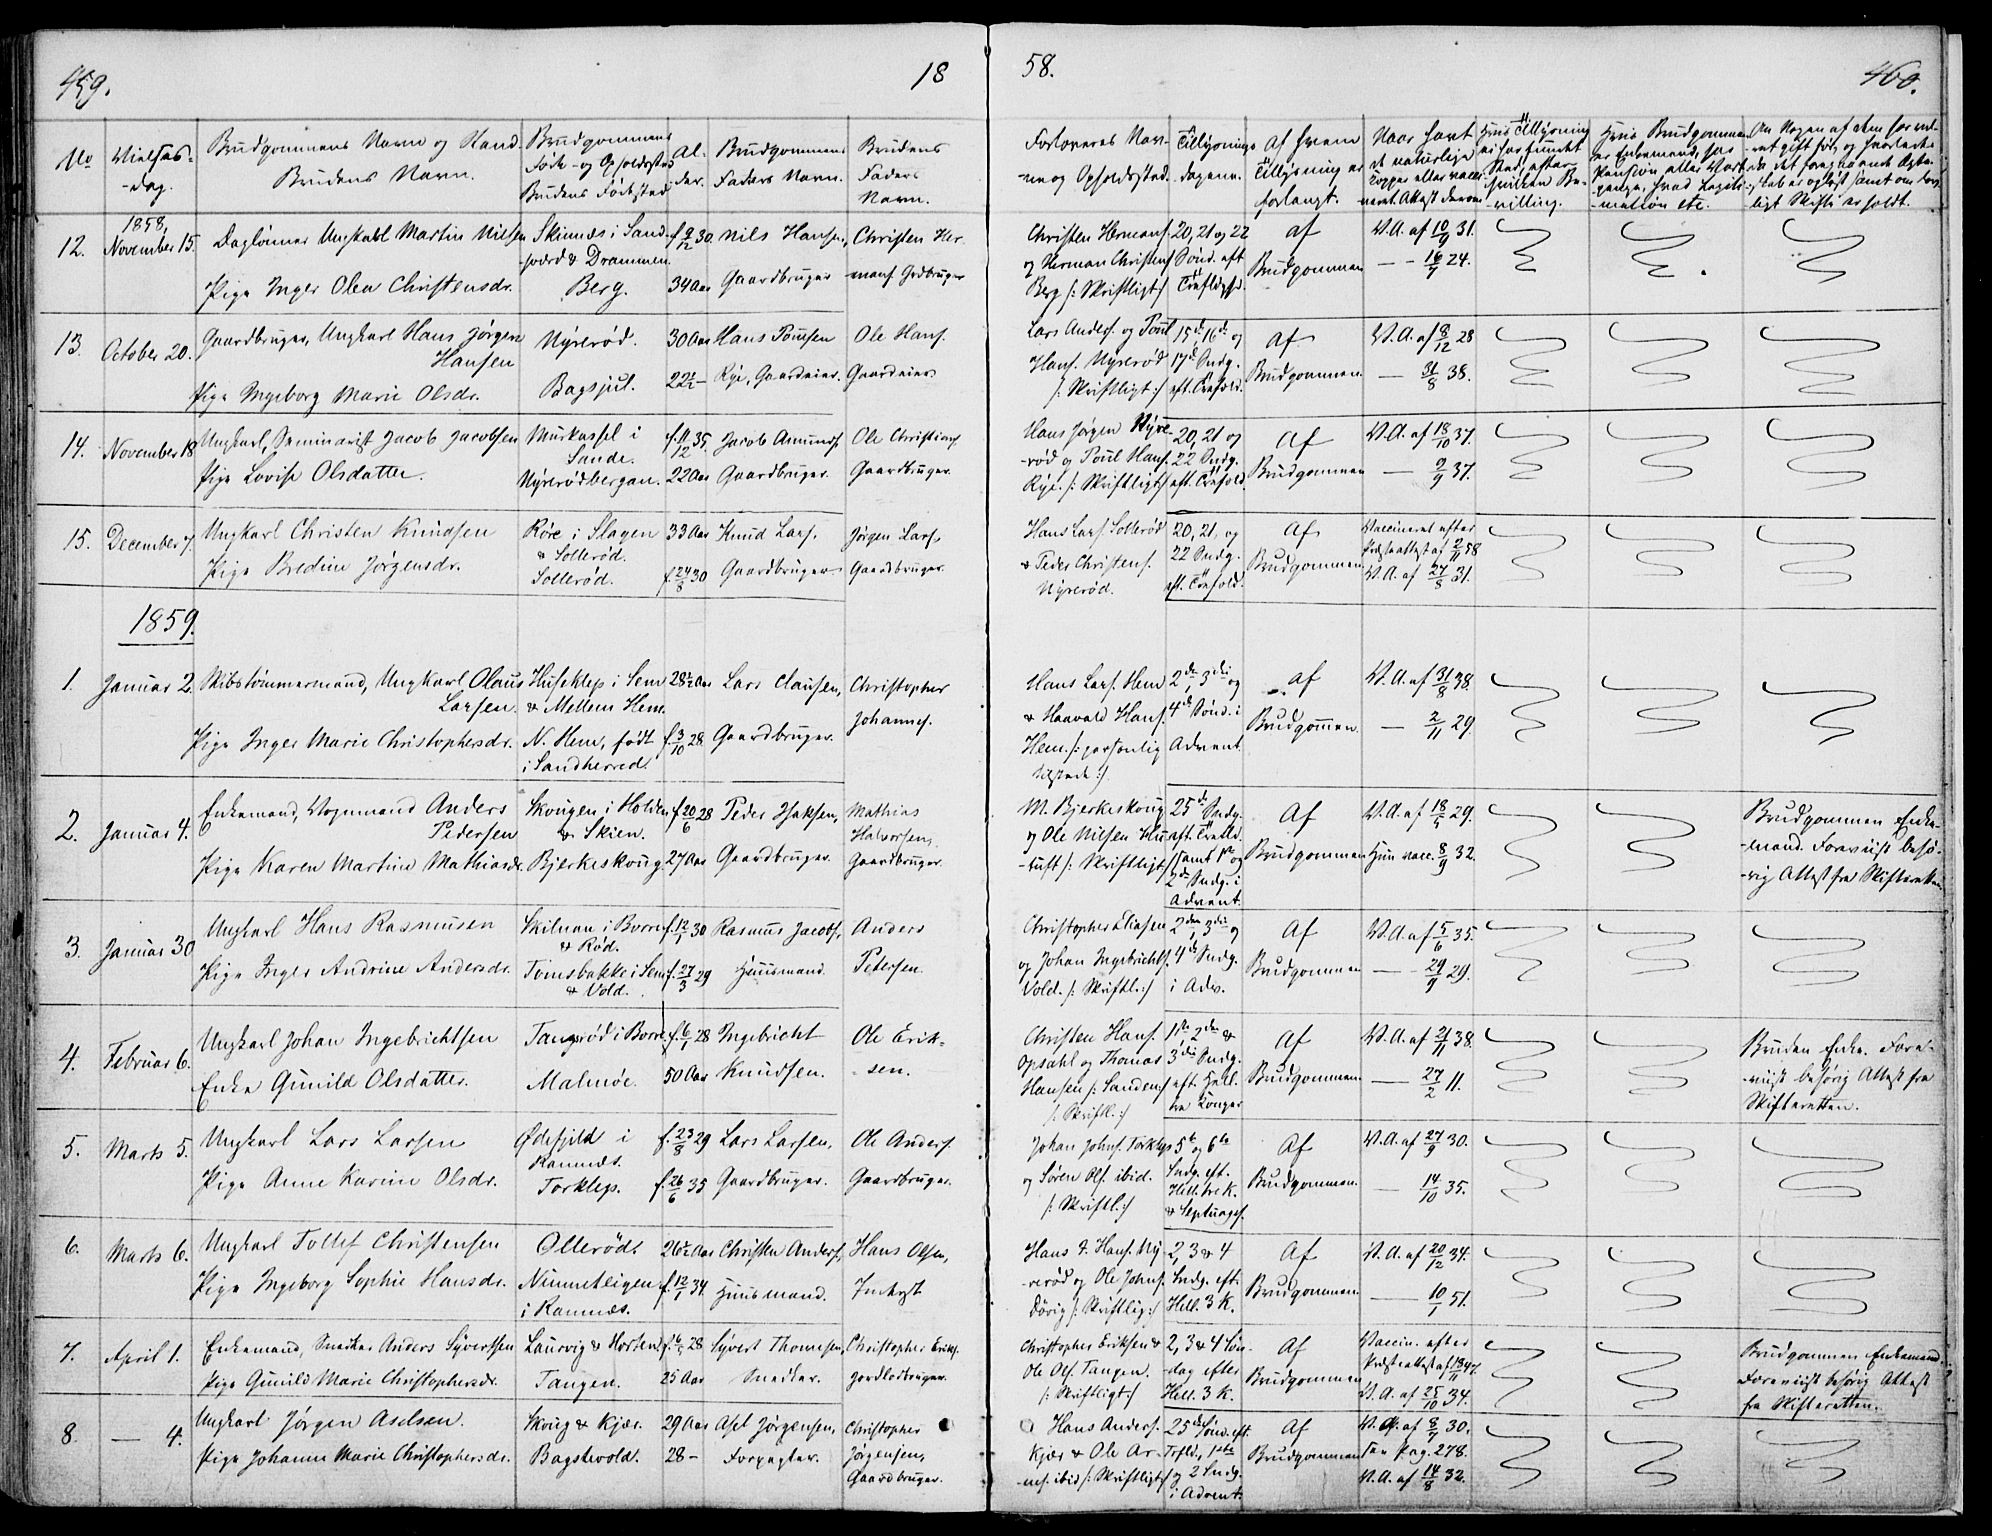 459.
18
58.
460.
No
Vielses-
-dag.
Brudgommens Navn og Stand
Brudens Navn.
Brudgommens
Føde- og Opholdssted
Brudens Fødested
Al-
der.
Brudgommens
Faders Navn.
Brudens
Faders
Navn.
Forloveres Nav-
-ne og Opholdssted.
Tillysnings
dagene.
Af hvem
Tillysning er
forlangt.
Naar havt
de naturlige
Kopper eller vacci-
neret. Attest derom
Hvis Tillysning
ei har fundet
Sted, efter
hvilken Be-
-villing.
Hvis Brudgommen
er Enkemand, har
Pension eller Vart-
penge, hvad Legiti-
-mation etc.
Om Nogen af dem har væ-
-ret gift før, og hvorledes
da det foregaaende Ægte-
skab er opløst samt om lov-
ligt Skifte er holdt.
1858,
12.
November 15.
Daglønner Ungkarl Martin Nilsen
Pige Inger Olea Christensdr.
Skinnæs i Sand-
-sværd & Drammen.
Berg.
f. 9/12 30.
34 Aar
Nils Hansen,
Gaardbruger
Christen Her-
mans. Grdbruger
Christen Hermans.
og Herman Christens.
Berg /: Skriftligt :/
20, 21 og 22
Sønd. eft
Trefoldghd.
Af
Brudgommen
V.A. af 10/9 31.
— - 16/7 24.
13.
October 20.
Gaardbruger, Ungkarl Hans Jørgen
Hansen
Pige Ingeborg Marie Olsdr.
Nyrerød.
Bagsjul.
30 Aar
22½ -
Hans Poulsen
Rye, Gaardeier.
Ole Hans.
Gaardeier
Lars Anders. og Poul
Hans. Nyrerød
/: Skriftligt :/
15de, 16de og
17de Søndg.
eft. Trefold.
Af
Brudgommen.
V.A. af 8/12 28
— 31/8 38.
14.
November 18
Ungkarl, Seminarist Jacob Jacobsen
Pige Lovise Olsdatter.
Murkassel i
Sande.
Nyrerødbergan.
f. 11/12 35
22 Aar
Jacob Amunds.
Gaardbruger.
Ole Christians.
Gaardbruger.
Hans Jørgen Nyre-
-rød og Poul Hans.
Rye. /: Skriftligt :/
20, 21 og
22 Søndg.
eft. Trefold.
Af
Brudgommen
V.A. af 18/10 37.
— 9/9 37.
15.
December 7.
Ungkarl Christen Knudsen
Pige Bredine Jørgensdr.
Røre i Slagen
& Sollerød.
Sollerød.
33 Aar
f. 24/8 30
Knud Lars.
Gaardbruger
Jørgen Lars.
Gaardbruger.
Hans Lars. Sollerød
& Peder Christens.
Nyrerød.
20, 21, og
22 Søndg.
eft. Trefold.
Af
Brudgommen
Vaccineret efter
Præsteattest af 2/11 58
V.A. af 27/8 31.
1859.
1.
Januar 2.
Skibstømmermand, Ungkarl Olaus
Larsen.
Pige Inger Marie Christophersdr.
Huseklep i Sem
& Mellem Hem.
N. Hem, født
i Sandherred.
28½ Aar
f. 3/10 28
Lars Clausen,
Gaardbruger.
Christopher
Johannes.
Hans Lars. Hem
& Haavald Hans.
Hem. /: personlig
tilstede :/
2den, 3die og
4de Sønd. i
Advent.
Af
Brudgommen.
V.A. af 31/8 38.
— 2/11 29.
2.
Januar 4.
Enkemand, Vognmand Anders
Pedersen
Pige Karen Martine Mathiasdr.
Skougen i Holden
& Skien.
Bjerkeskoug.
f. 20/6 28
27 Aar
Peder Isaksen,
Gaardbruger.
Mathias
Halvorsen,
Gaardbruger.
M. Bjerkeskoug
og Ole Nilsen Hu-
-tuft /: Skriftligt :/
25de Søndg.
eft. Trefld.
samt 1ste og
2den Søndg. i
Advent.
Af
Brudgommen
V.A. af 18/5 29.
Hun vacc. 8/9 32.
Brudgommen Enke-
-mand. Foreviist behø-
-rig Attest fra Skifteretten
3.
Januar 30
Ungkarl Hans Rasmusen
Pige Inger Andrine Andersdr.
Skilnan i Borre
& Rød.
Tomsbakke i Sem
& Vold.
f. 12/1 30
f. 27/3 29
Rasmus Jacobs.
Huusmand.
Anders
Petersen
Christopher Eliasen
og Johan Ingebrichts.
Vold. /: Skriftl. :/
2den, 3die og
4de Søndg.
i Adv.
Af
Brudgommen
V.A. af 5/6 35.
— - 29/9 29.
4.
Februar 6.
Ungkarl Johan Ingebrichtsen
Enke Gunild Olsdatter.
Tangerød i Borre
Malmøe.
f. 6/1 28
50 Aar
Ingebricht
Knudsen.
Ole Erik-
- sen.
Christen Hans.
Opsahl og Thomas
Hansen /: Sanden :/
/: Skriftl. :/
1ste, 2den &
3die Søndg.
eft. Hell.
tre Konger
Af
Brudgommen.
V.A. af 21/11 38.
— 27/2 11.
Bruden Enke. Fore-
-viist behørig Attest fra
Skifteretten.
5.
Marts 5.
Ungkarl Lars Larsen
Pige Anne Karine Olsdr.
Ødefjeld i
Ramnæs.
Torklep.
f. 23/8 29
f. 26/6 35
Lars Larsen,
Gaardbruger.
Ole Anders.
Gaardbruger.
Johan Johns. Torklep
og Søren Ols. ibid.
/: Skriftl. :/
5te og 6te
Søndg. eft.
Hell. tre K.
& Septuages.
Af
Brudgommen.
V.A. af 27/9 30.
— 14/10 35.
6.
Marts 6.
Ungkarl Tollef Christensen
Pige Ingeborg Sophie Hansdr.
Ollerød.
Nimmetleigen
i Ramnæs.
26½ Aar
f. 12/1 34
Christen Anders.,
Huusmand.
Hans Olsen,
Inderst
Hans J. Hans. Ny-
-rerød og Ole Johns.
Dørig /: Skriftlig :/
2, 3 & 4
Søndg. eft.
Hell. 3 K.
Af
Brudgommen.
V.A. af 20/12 34.
— 10/1 51.
7.
April 1.
Enkemand, Snedker Anders Syvertsen
Pige Gunild Marie Christophersdr.
Laurvig & Horten
Tangen.
28
25 Aar
Syvert Thomesen,
Snedker.
Christopher Eriks.
Jordlodbruger.
Christopher Eriksen &
Ole Ols. Tangen.
/: Skriftligt :/
2, 3 & 4 Søn-
dag efter
Hell. 3 K.
Af
Brudgommen
Vaccin. efter
Præsteattest af 13/11 47.
V.A. af 25/10 34.
Brudgommen Enkemand.
Foreviist behørig Attest
fra Skifteretten.
8.
— 4.
Ungkarl Jørgen Aselsen.
Pige Johanne Marie Christophersdr.
Skoug & Kjær.
Bagstevold.
29 Aar
28 -
Asel Jørgensen,
Forpagter.
Christopher
Jørgensen,
Gaardbruger.
Hans Anders.
Kjær & Ole Ar-
-nes. ibid /: Skriftligt :/
25de Sønd. eft.
Trfld., 1ste
og 2 Søndg.
i Advent.
Af
Brudgommen
V.A. af 8/7 30.
See Pag. 278.
V.A. af 14/8 32.